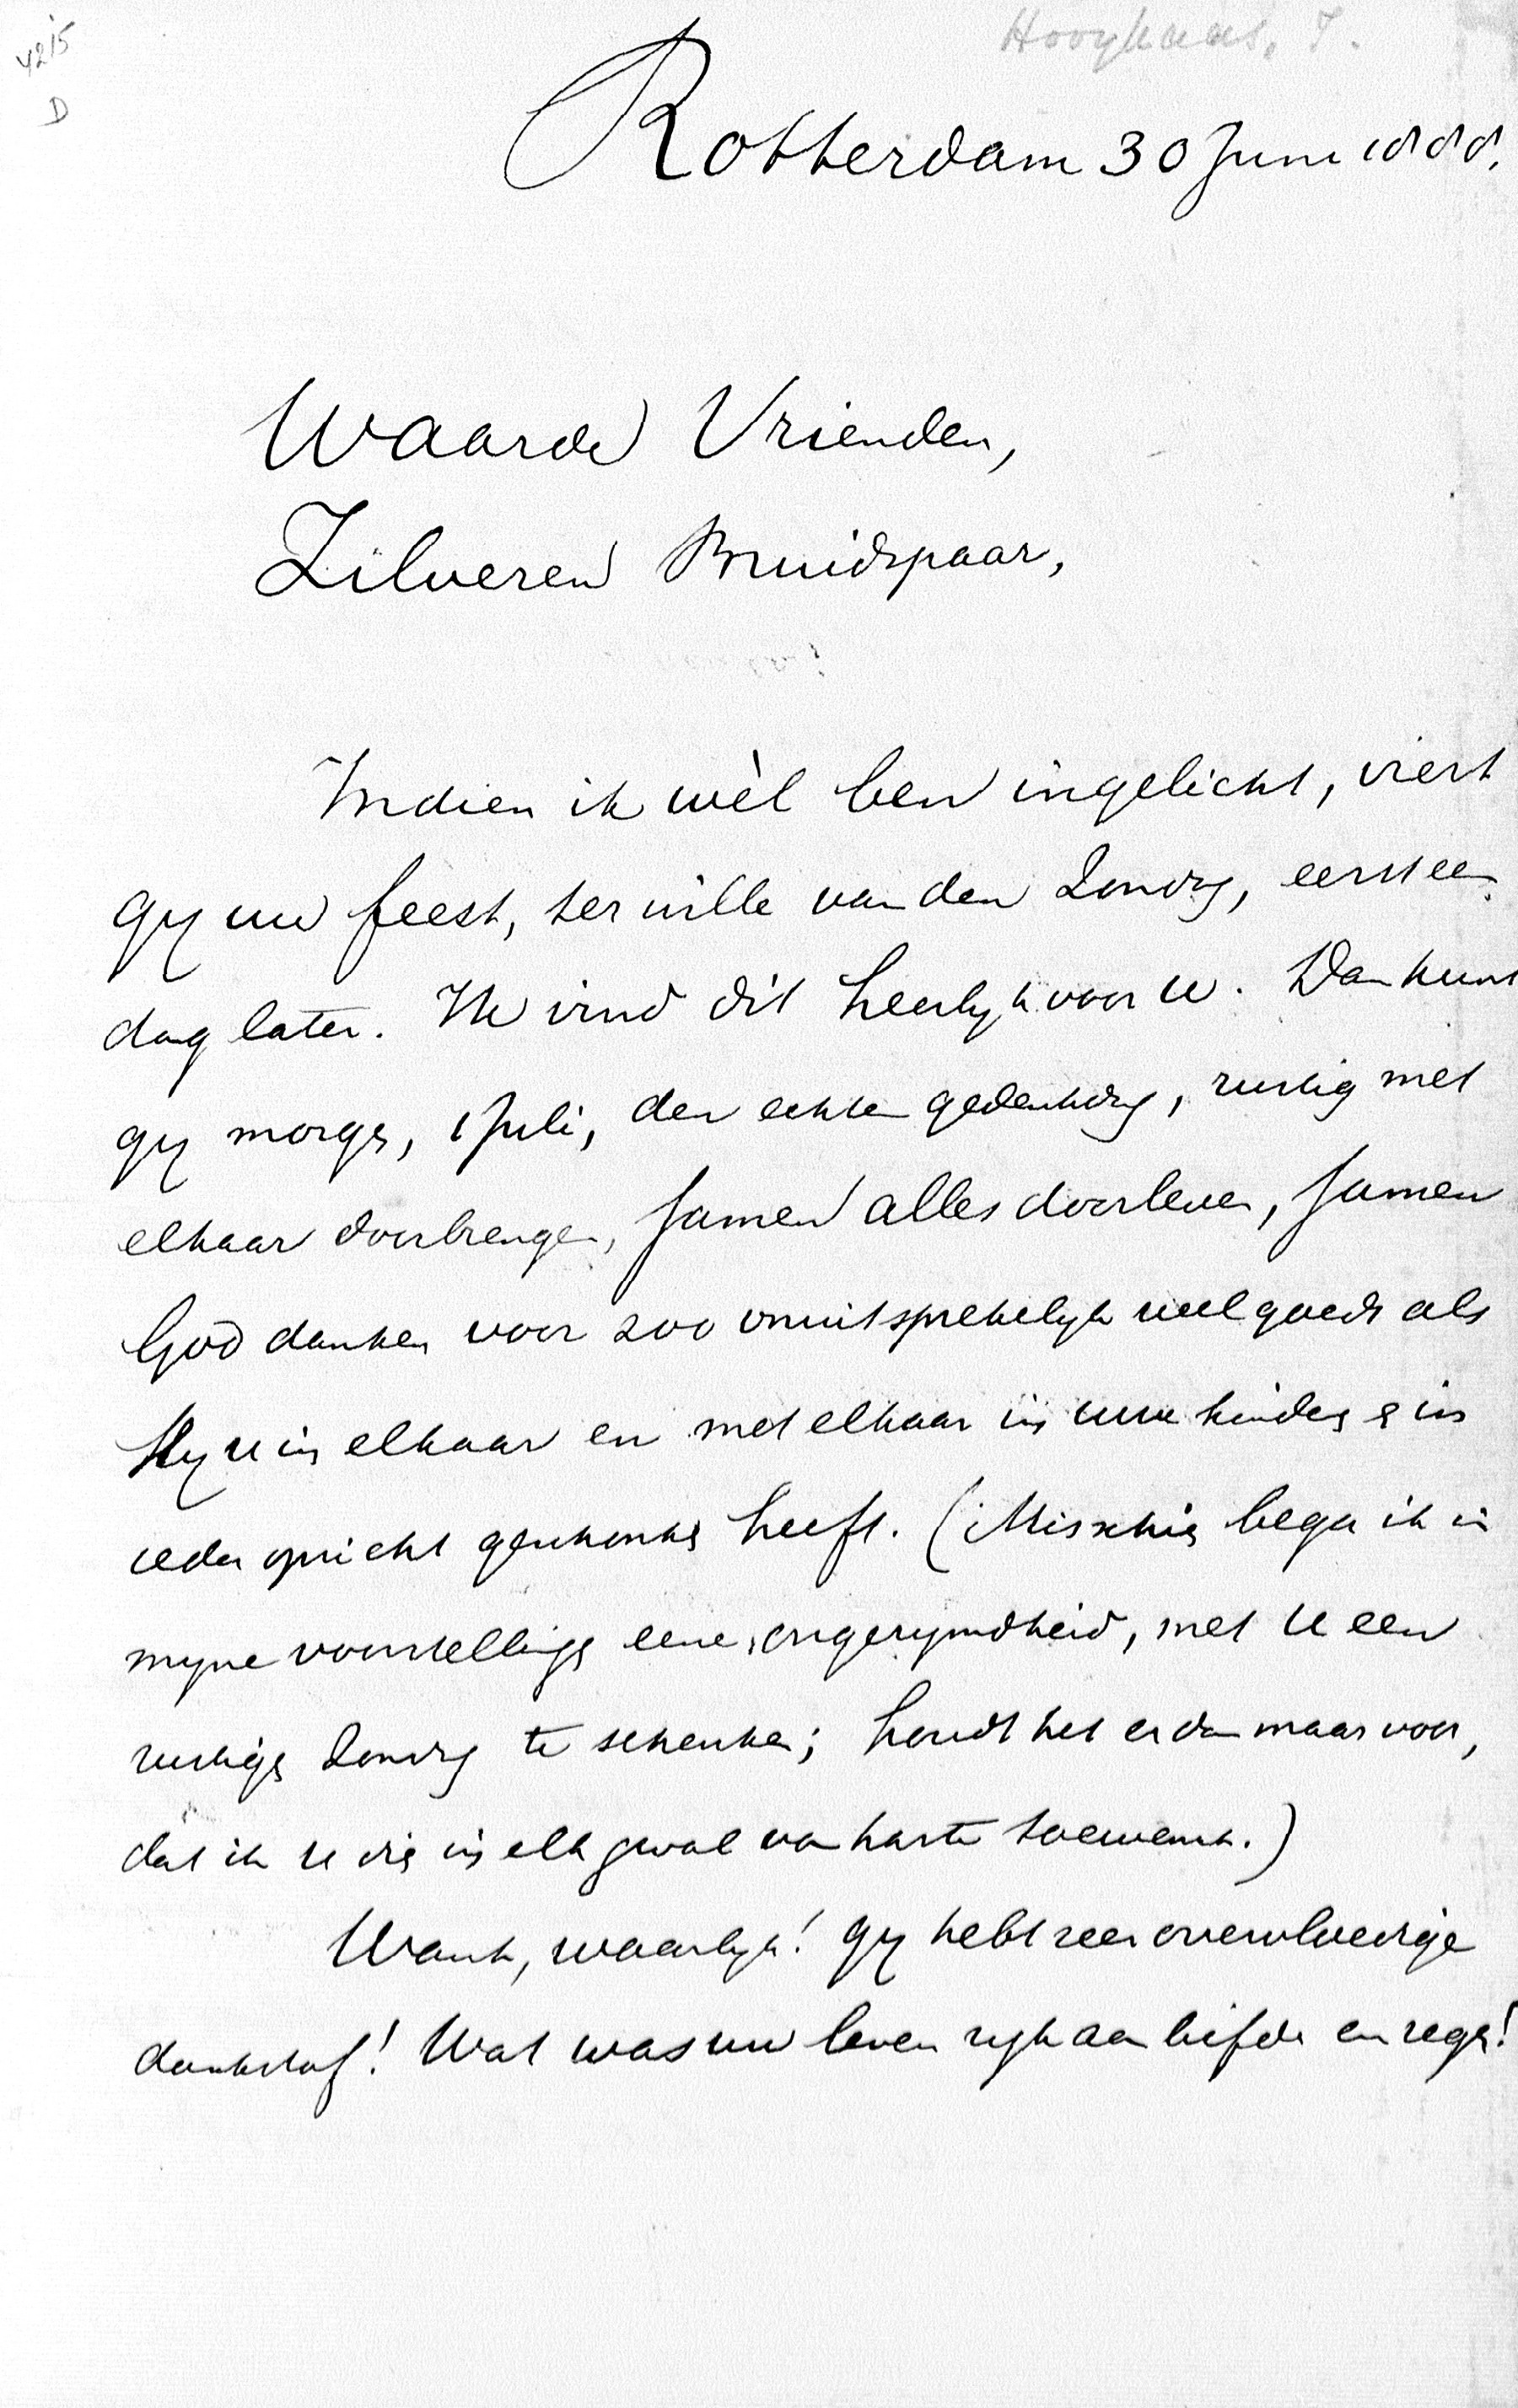 4215
D
Hooykaas, I.
Rotterdam 30 Juni 1888.
Waarde Vrienden,
Zilveren Bruidspaar,
Indien ik wèl ben ingelicht, viert
gy uw feest, ter wille van den Zondag, eerst een
dag later. Ik vind dit heerlyk voor U. Dan kunt
gy morgen, 1 Juli, den echten gedenkdag, rustig met
elkaar doorbrengen, samen alles doorleven, samen
God danken voor zoo onuitsprekelyk veel goeds als
Hy u in elkaar en met elkaar in uwe kinderen & in
ieder opzicht geschonken heeft. (Misschien bega ik in
myne voorstelling eene ongerymdheid, met U een
rustigen Zondag te schenken; houdt het er dan maar voor,
dat ik U dien in elk geval van harte toewensch.)
Want, waarlyk! gy hebt zeer overvloedige
dankstof! Wat was uw leven ryk aan liefde en zegen!